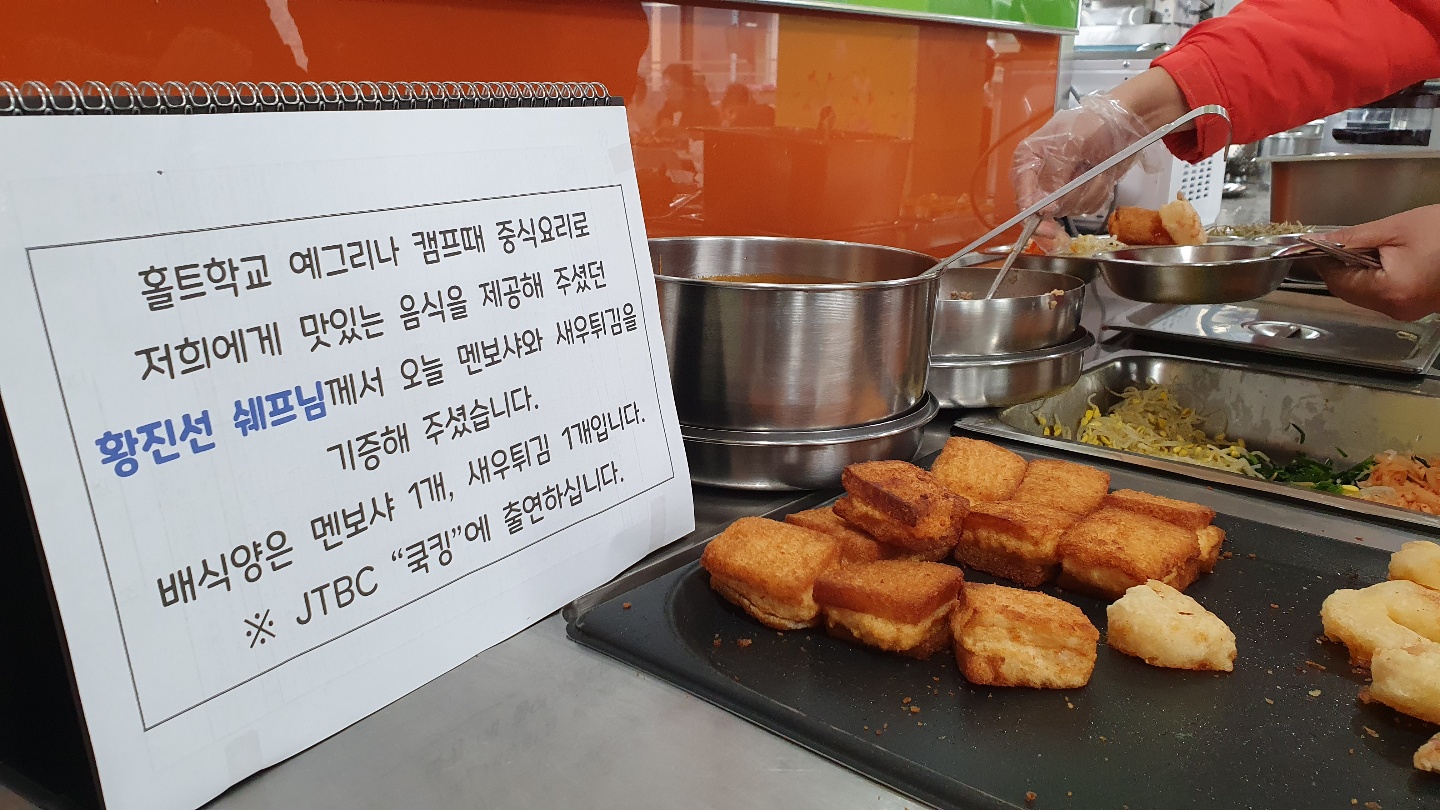 홀트학교 예그리나 캠프때 중식요리로
저희에게 맛있는 음식을 제공해 주셨던
황진선 쉐프님께서 오늘 멘보샤와 새우튀김을
기증해 주셨습니다.
배식양은 멘보샤 1개, 새우튀김 1개입니다.
※ JTBC “쿡킹”에 출연하십니다.